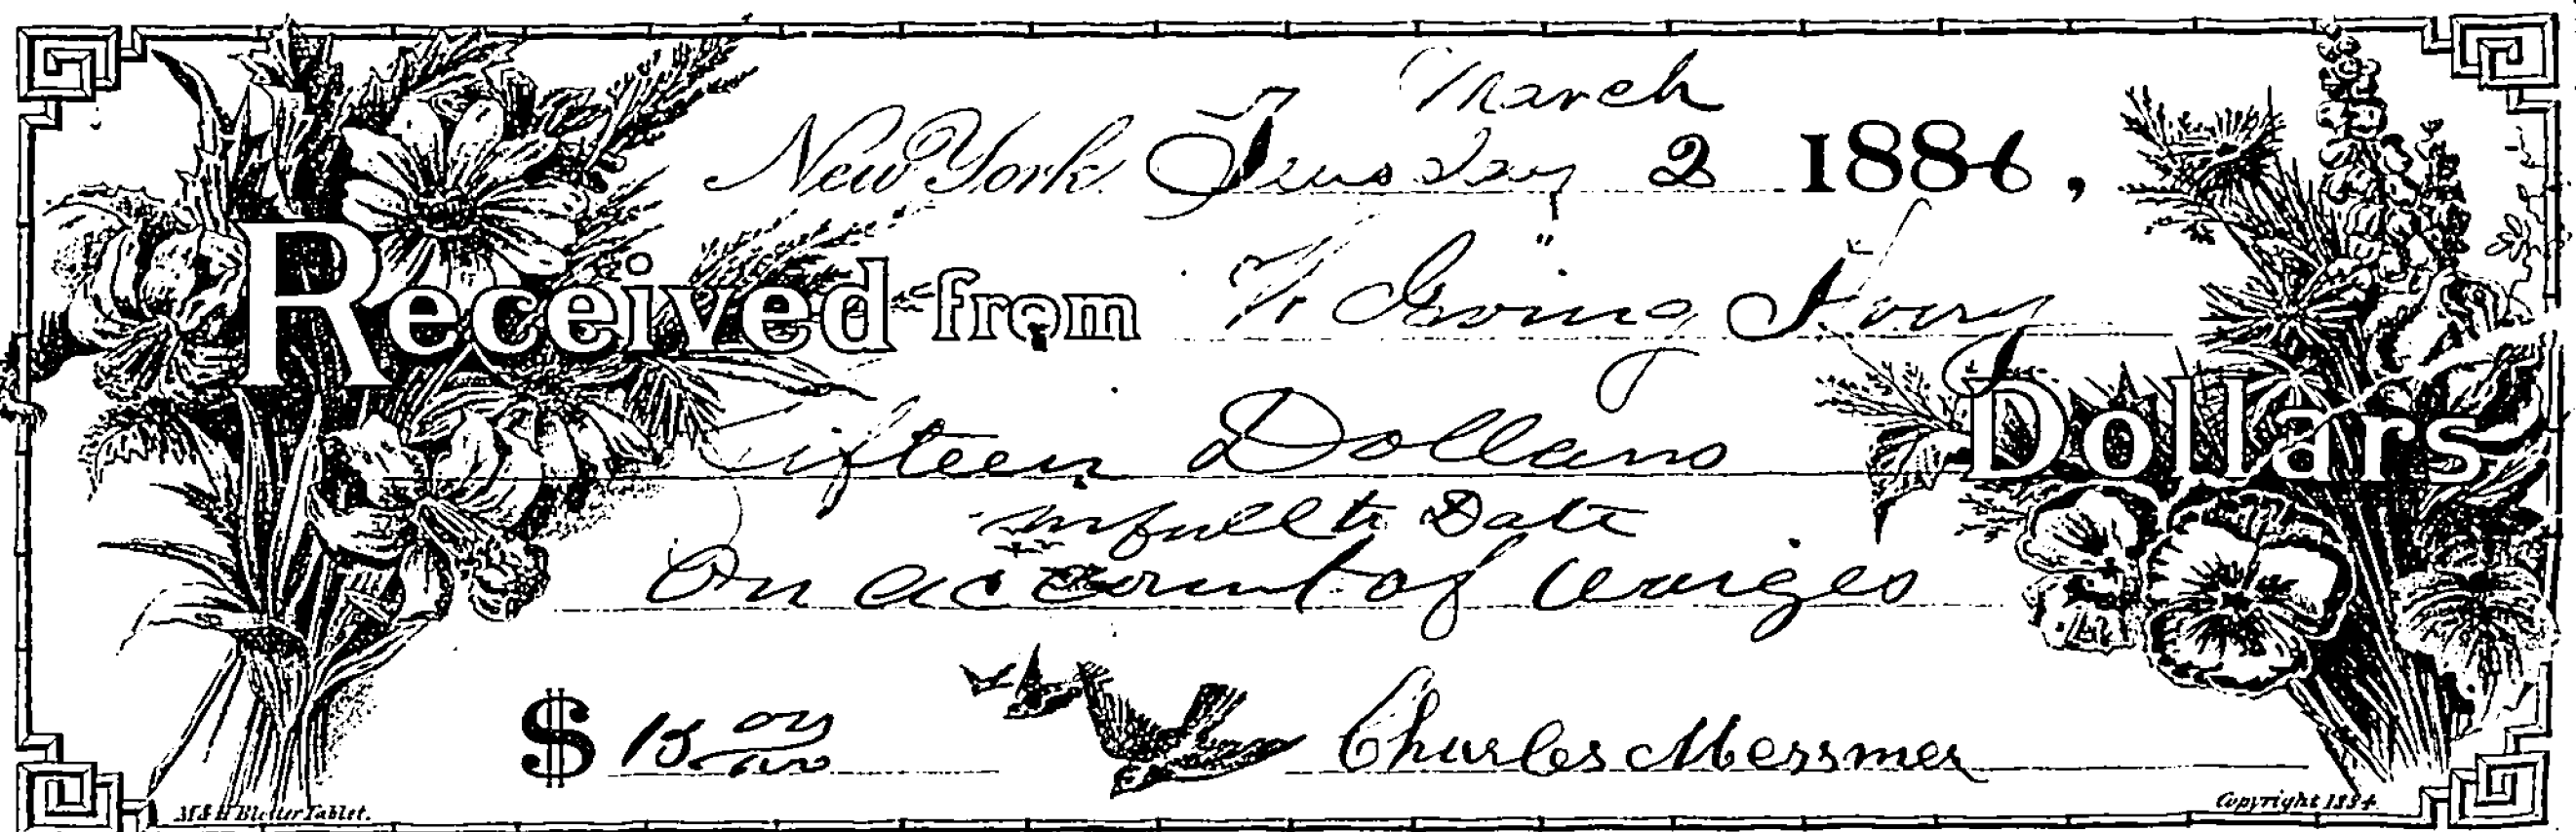 March
New York Tuesday 2 1886,
Received from Irving
Fifteen Dollars Dollars
in full to Date
On account of wages
$ 15 00/100 Charles Messmer
M & H Blotter Tablet. Copyright 1884.